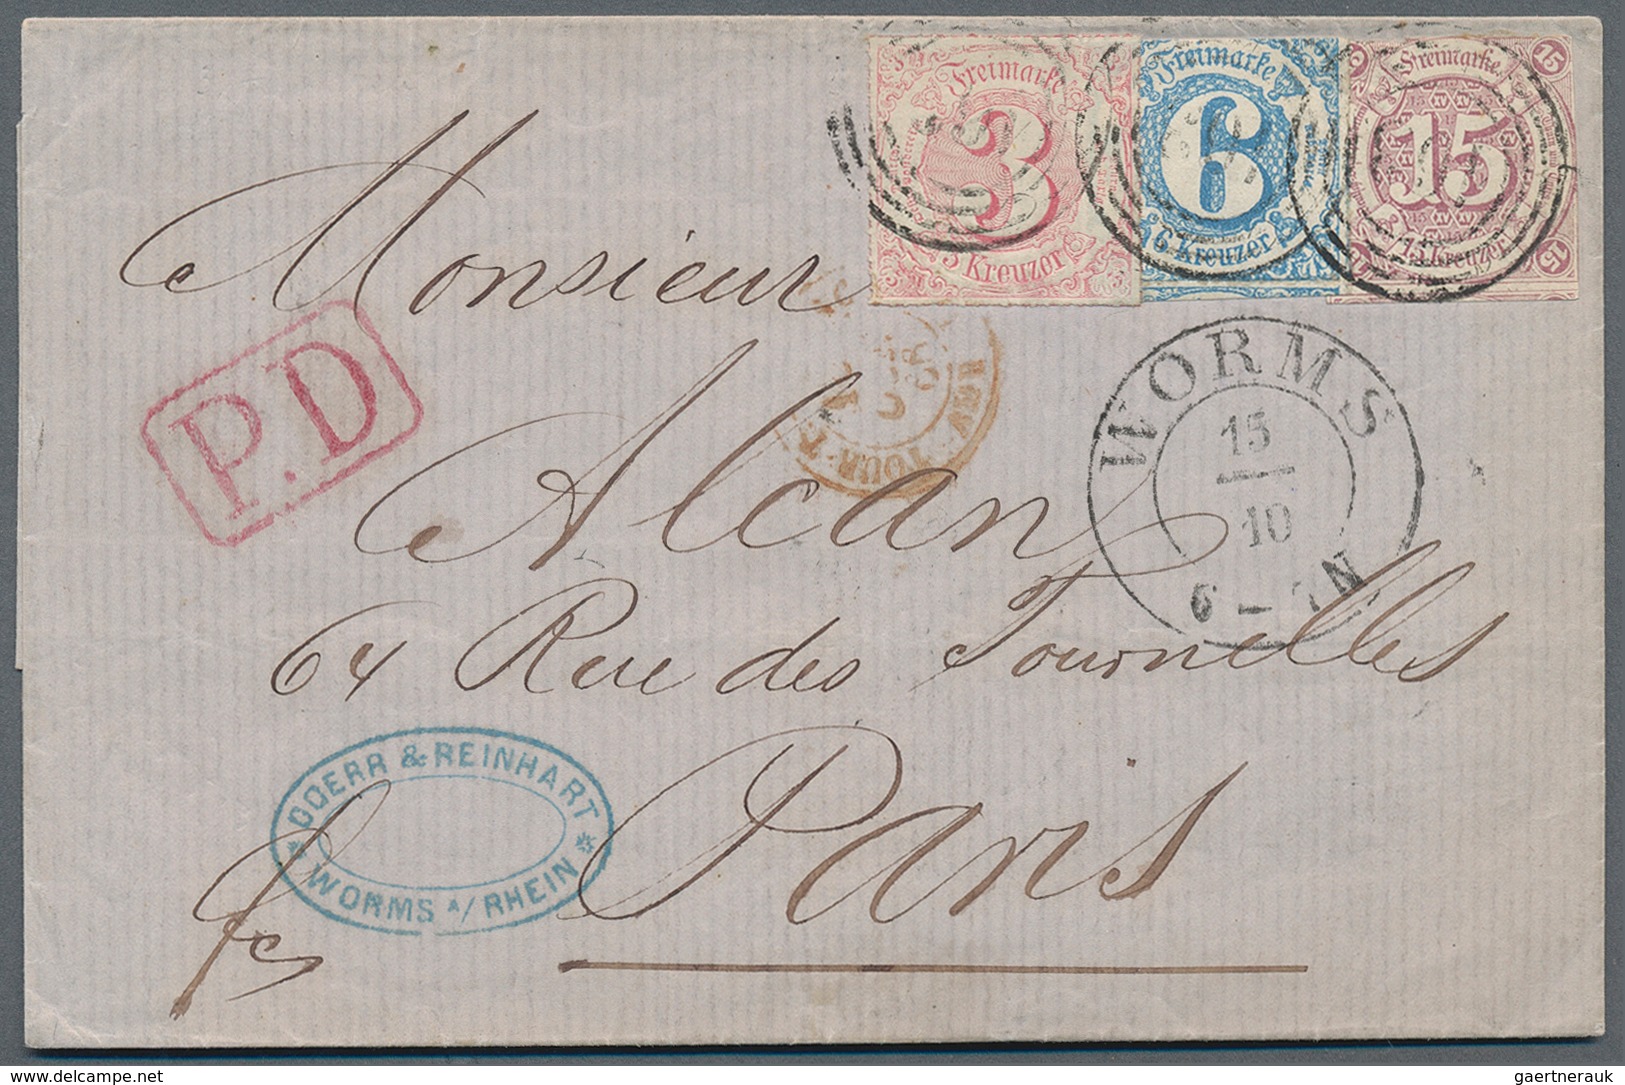 Freimarke
3
3 Kreuzer
Freimarke
6
6 Kreuzer
15
Freimarke
15
15 Kreuzer
15
P.D
WORMS
15
10
Monsieur
Alcan
64 Rue des Tournelles
Paris
DOERR & REINHART
WORMS A/ RHEIN
delcampe.net
gaertnerauk